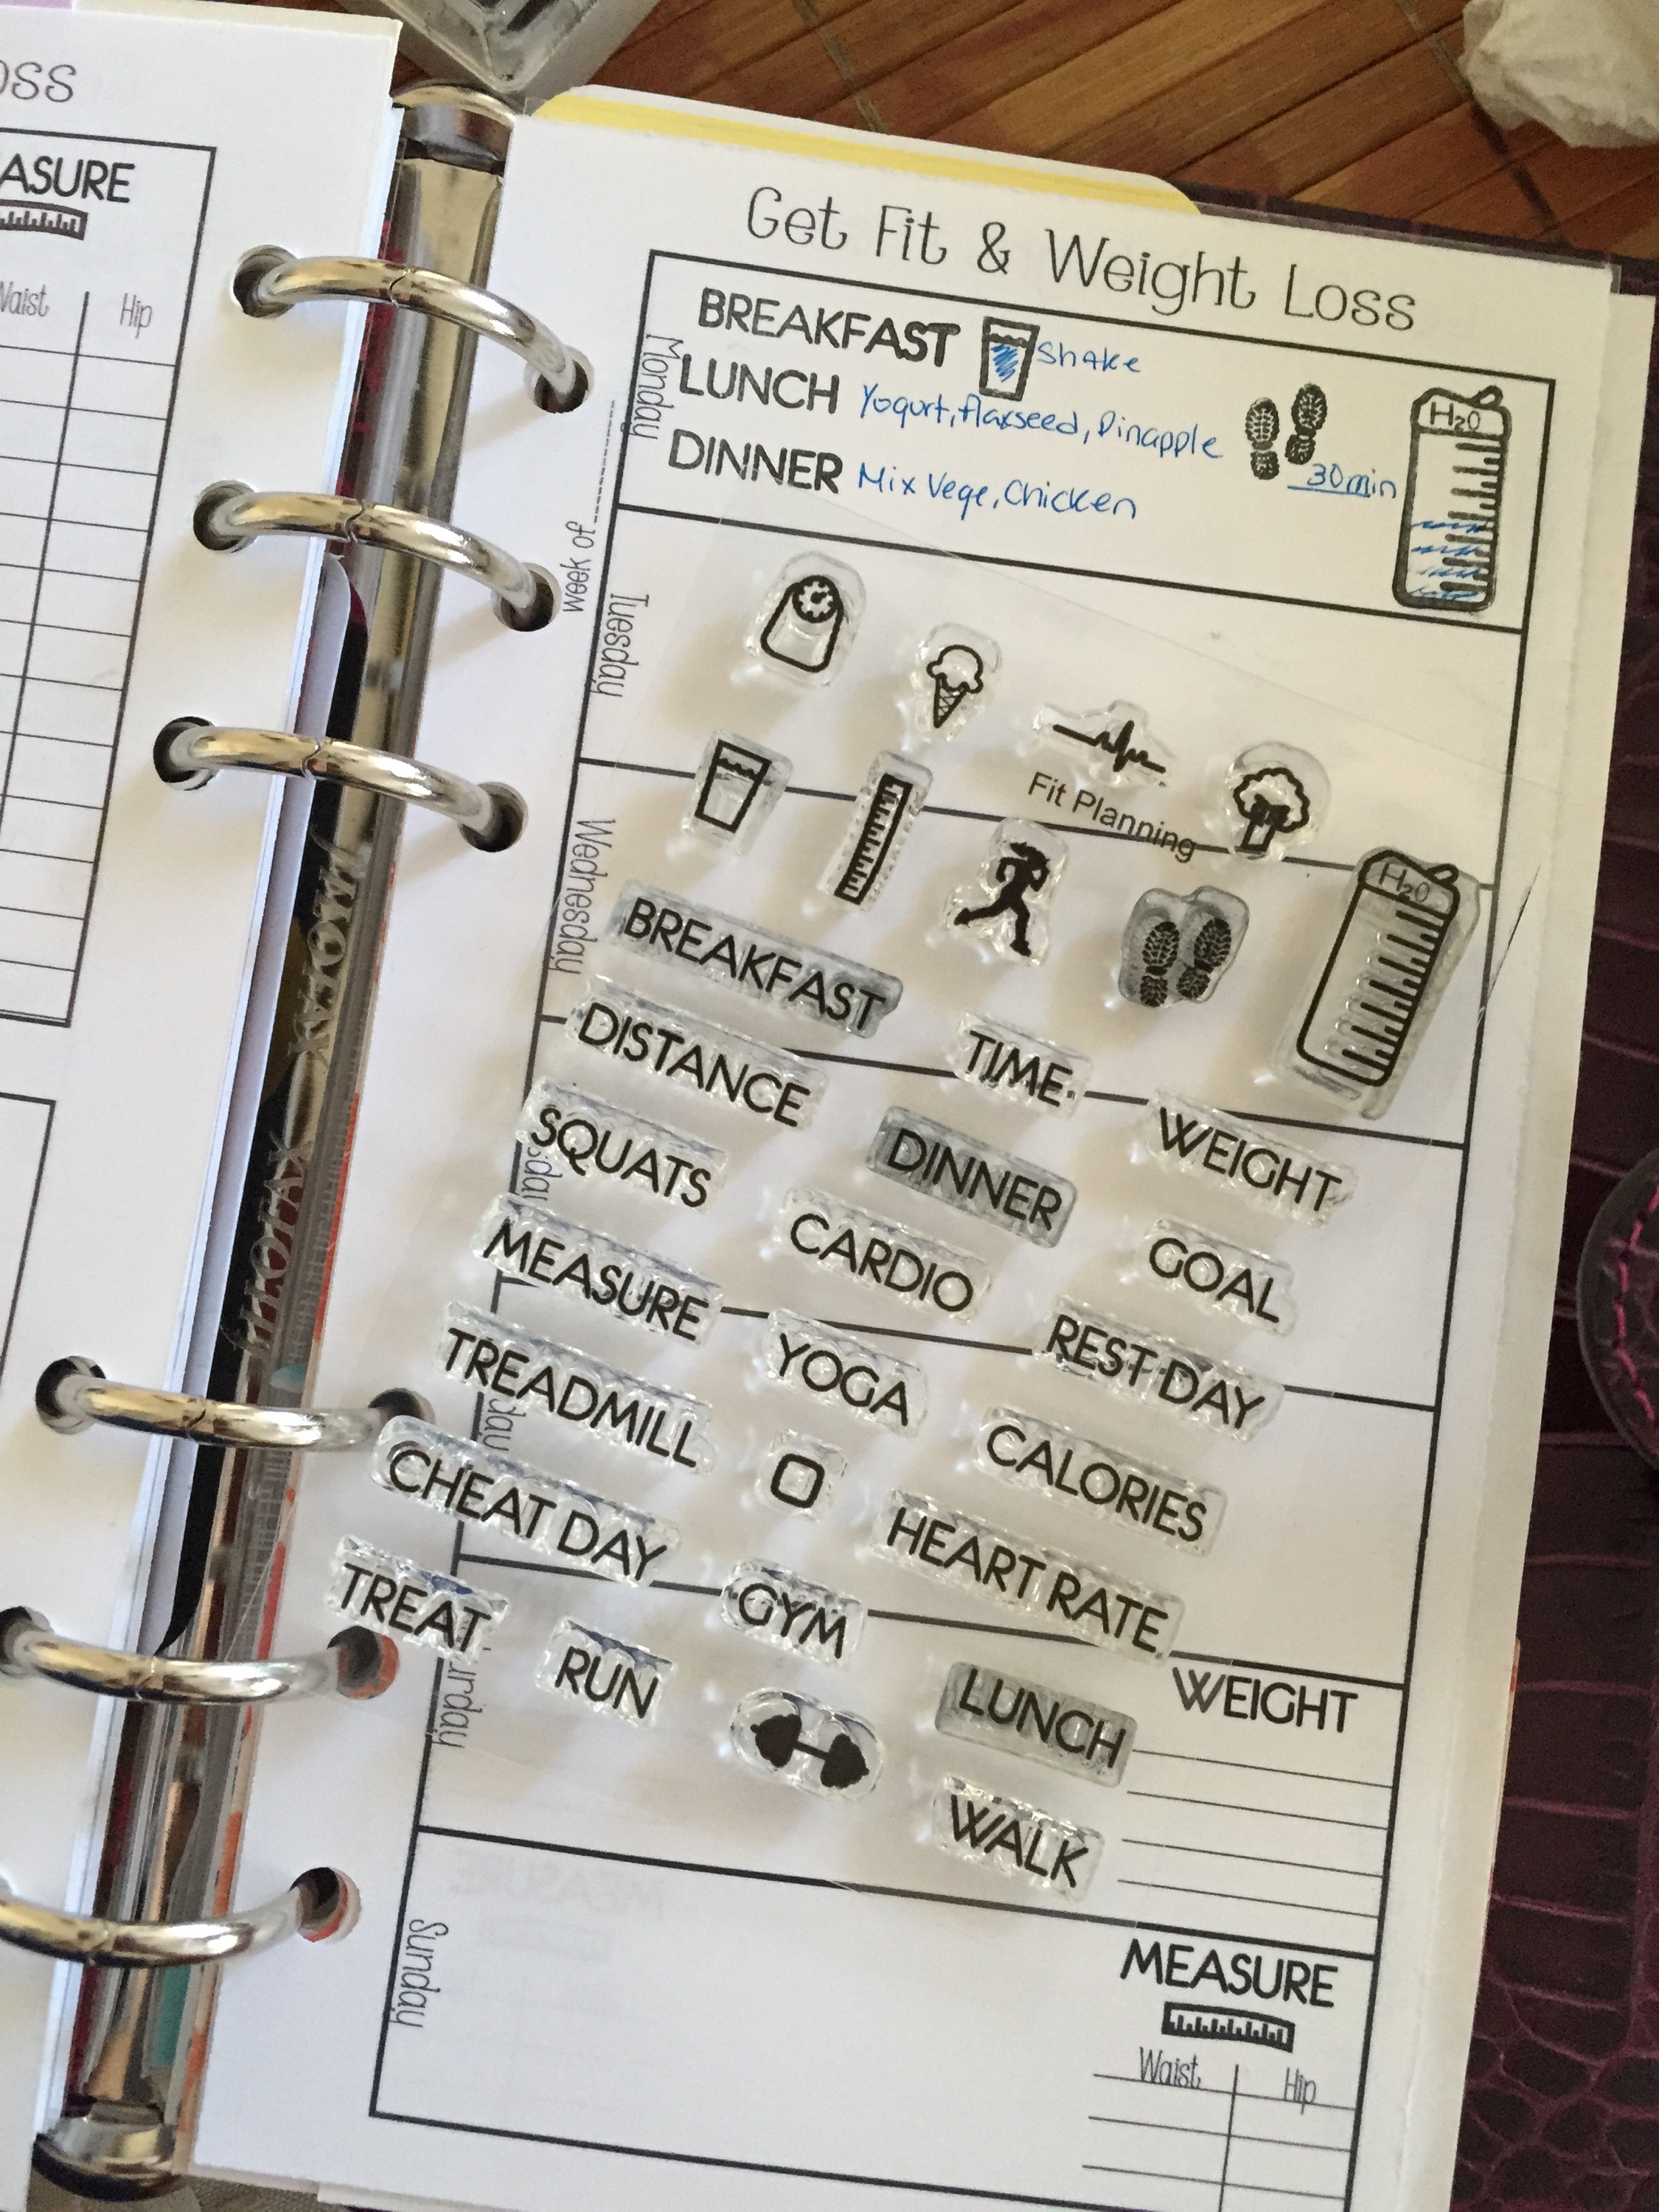 OSS
EASURE
Waist Hip
Get Fit & Weight Loss
week of
Monday
BREAKFAST Shake
LUNCH Yogurt, flaxseed, Pinapple
DINNER Mix Vege, Chicken
30min
H2O
Tuesday
Fit Planning
H2O
Wednesday
BREAKFAST
DISTANCE TIME
WEIGHT
SQUATS DINNER
sday
MEASURE CARDIO GOAL
TREADMILL YOGA REST DAY
day
CHEAT DAY CALORIES
TREAT GYM HEART RATE
urday
RUN LUNCH WEIGHT
WALK
Sunday
MEASURE
Waist Hip